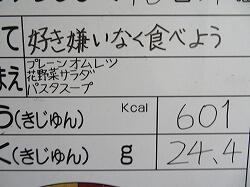 て 好き嫌いなく食べよう
まえ プレーンオムレツ
花野菜サラダ
パスタスープ
う(きじゅん) Kcal 601
く(きじゅん) g 24.4